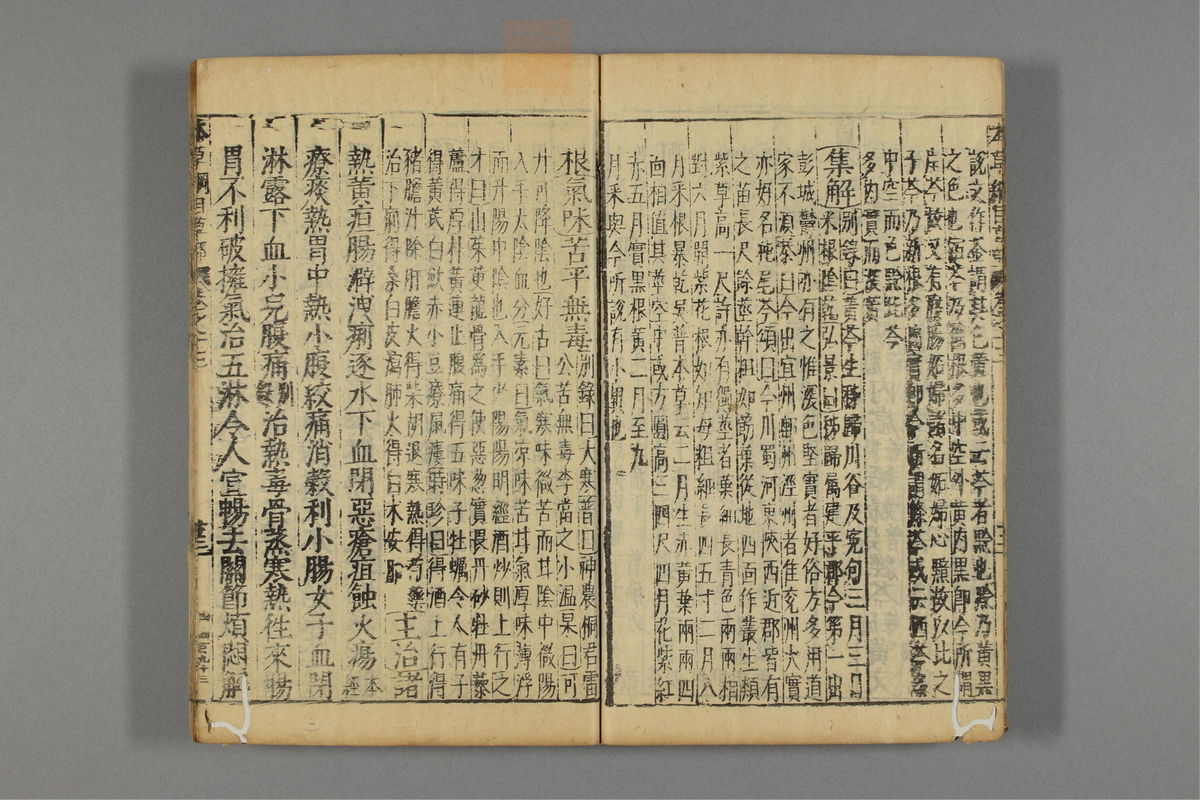 說文作莶謂其色黃也或云芩者黔也黔乃黃黑
之色也宿芩乃舊根多中空外黃內黑即今所謂
片芩故又有腐腸妬婦諸名妬婦心黯故以比之
子芩乃新根多內實即今所謂條芩或云西芩多
中空而色黔北芩
多內實而深黃
集解別錄曰黃芩生秭歸川谷及宛句三月三日
采根陰乾弘景曰秭歸屬建平郡今第一出
彭城鬱州亦有之惟深色堅實者好俗方多用道
家不須恭曰今出宜州鄜州涇州者佳兗州大實
亦好名㹠尾芩頌曰今川蜀河東陝西近郡皆有
之苗長尺餘莖幹粗如筯葉從地四面作叢生類
紫草高一尺許亦有獨莖者葉細長青色兩兩相
對六月開紫花根如知母粗細長四五寸二月八
月采根暴乾吳普本草云二月生赤黃葉兩兩四
四相值其莖空中或方圓高三四尺四月花紫紅
赤五月實黑根黃二月至九
月采與今所說有小異也
根氣味苦平無毒別錄曰大寒普曰神農桐君雷
公苦無毒李當之小溫杲曰可
升可降陰也好古曰氣寒味微苦而甘陰中微陽
入手太陰血分元素曰氣涼味苦甘氣厚味薄浮
而升陽中陰也入手少陽陽明經酒炒則上行之
才曰山茱萸龍骨爲之使惡葱實畏丹砂牡丹藜
蘆得厚朴黃連止腹痛得五味子牡蠣令人有子
得黃芪白歛赤小豆療鼠瘻時珍曰得酒上行得
豬膽汁除肝膽火得柴胡退寒熱得芍藥
治下痢得桑白皮瀉肺火得白朮安胎 主治諸
熱黃疸腸澼洩痢逐水下血閉惡瘡疽蝕火瘍本經
療痰熱胃中熱小腹絞痛消穀利小腸女子血閉
淋露下血小兒腹痛別錄治熱毒骨蒸寒熱往來腸
胃不利破擁氣治五淋令人宣暢去關節煩悶解
本草綱目草部